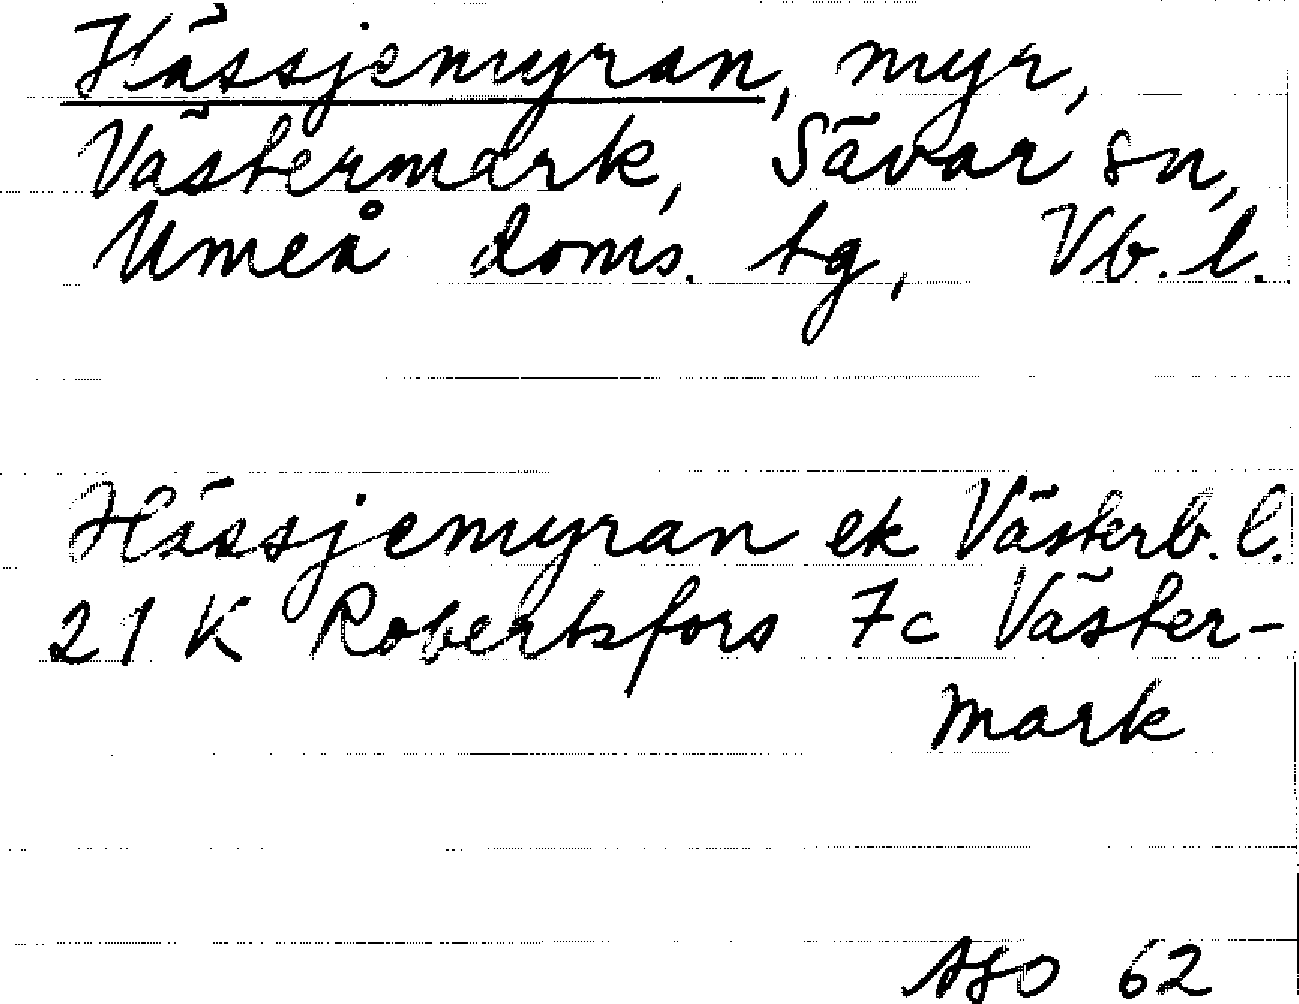 Hässjemyran, myr,
Västermark, Sävar sn,
Umeå doms. tg, Vb. l.
Hässjemyran ek Västerb. l.
21 K Robertsfors 7c Väster-
mark
62